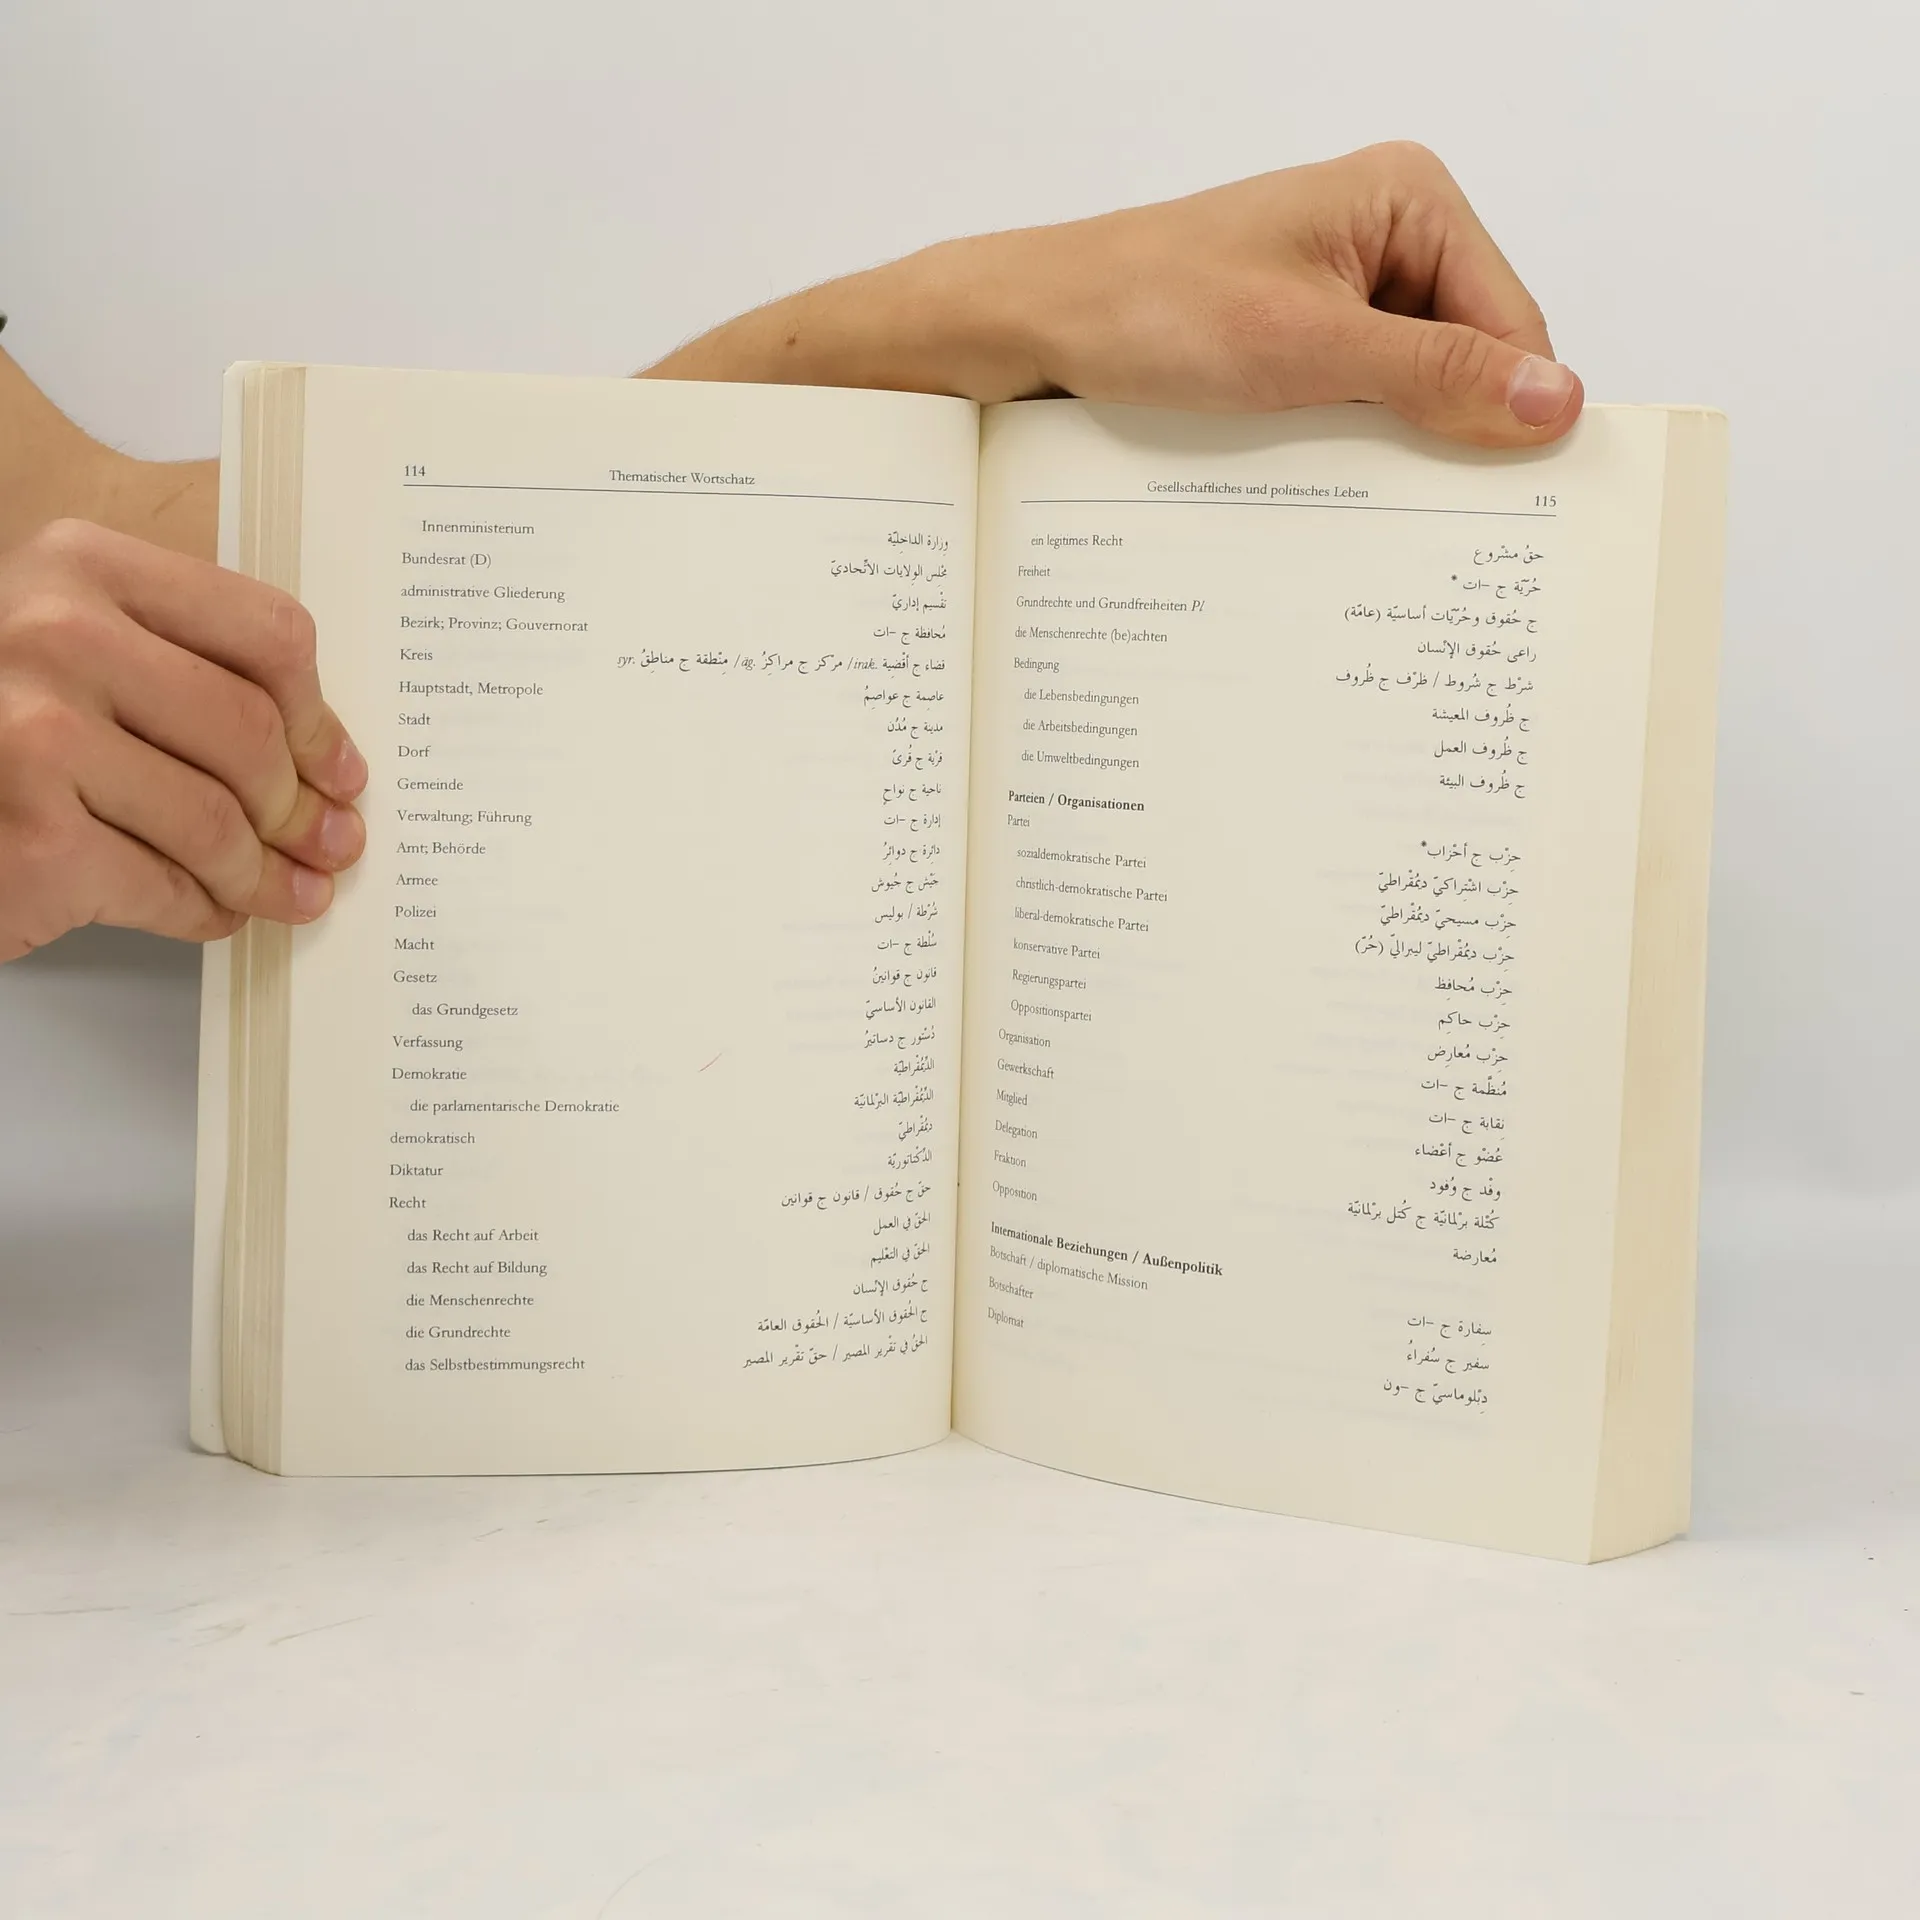 114
Thematischer Wortschatz
Innenministerium وِزارة الداخِليّة
Bundesrat (D) مَجْلِس الوِلايات الاتِّحاديّ
administrative Gliederung تقْسيم إداريّ
Bezirk; Provinz; Gouvernorat مُحافظة ج –ات
Kreis قضاء ج أقْضِية irak./ مرْكز ج مراكِزُ äg./ مِنْطقة ج مناطِقُ syr.
Hauptstadt, Metropole عاصِمة ج عواصِمُ
Stadt مدينة ج مُدُن
Dorf قرْية ج قُرىً
Gemeinde ناحية ج نواحٍ
Verwaltung; Führung إدارة ج –ات
Amt; Behörde دائِرة ج دوائِرُ
Armee جَيْش ج جُيوش
Polizei شُرْطة / بوليس
Macht سُلْطة ج –ات
Gesetz قانون ج قوانينُ
das Grundgesetz القانون الأساسيّ
Verfassung دُسْتور ج دساتيرُ
Demokratie الدِّيمُقْراطيّة
die parlamentarische Demokratie الدِّيمُقْراطيّة البرْلمانيّة
demokratisch ديمُقْراطيّ
Diktatur الدِّكْتاتوريّة
Recht حقّ ج حُقوق / قانون ج قوانين
das Recht auf Arbeit الحقّ في العمل
das Recht auf Bildung الحقّ في التعْليم
die Menschenrechte ج حُقوق الإنْسان
die Grundrechte ج الحُقوق الأساسيّة / الحُقوق العامّة
das Selbstbestimmungsrecht الحقُّ في تقْرير المصير / حقّ تقْرير المصير
Gesellschaftliches und politisches Leben
115
ein legitimes Recht حقُ مشْروع
Freiheit حُرّيّة ج –ات *
Grundrechte und Grundfreiheiten Pl ج حُقوق وحُرّيّات أساسيّة (عامّة)
die Menschenrechte (be)achten راعى حُقوق الإنْسان
Bedingung شرْط ج شُروط / ظرْف ج ظُروف
die Lebensbedingungen ج ظُروف المعيشة
die Arbeitsbedingungen ج ظُروف العمل
die Umweltbedingungen ج ظُروف البيئة
Parteien / Organisationen
Partei حِزْب ج أحْزاب*
sozialdemokratische Partei حِزْب اشْتِراكيّ ديمُقْراطيّ
christlich-demokratische Partei حِزْب مسيحيّ ديمُقْراطيّ
liberal-demokratische Partei حِزْب ديمُقْراطيّ ليبراليّ (حُرّ)
konservative Partei حِزْب مُحافِظ
Regierungspartei حِزْب حاكِم
Oppositionspartei حِزْب مُعارِض
Organisation مُنظَّمة ج –ات
Gewerkschaft نِقابة ج –ات
Mitglied عُضْو ج أعْضاء
Delegation وفْد ج وُفود
Fraktion كُتْلة برْلمانيّة ج كُتل برْلمانيّة
Opposition مُعارضة
Internationale Beziehungen / Außenpolitik
Botschaft / diplomatische Mission سِفارة ج –ات
Botschafter سفير ج سُفراءُ
Diplomat دِبْلوماسيّ ج –ون